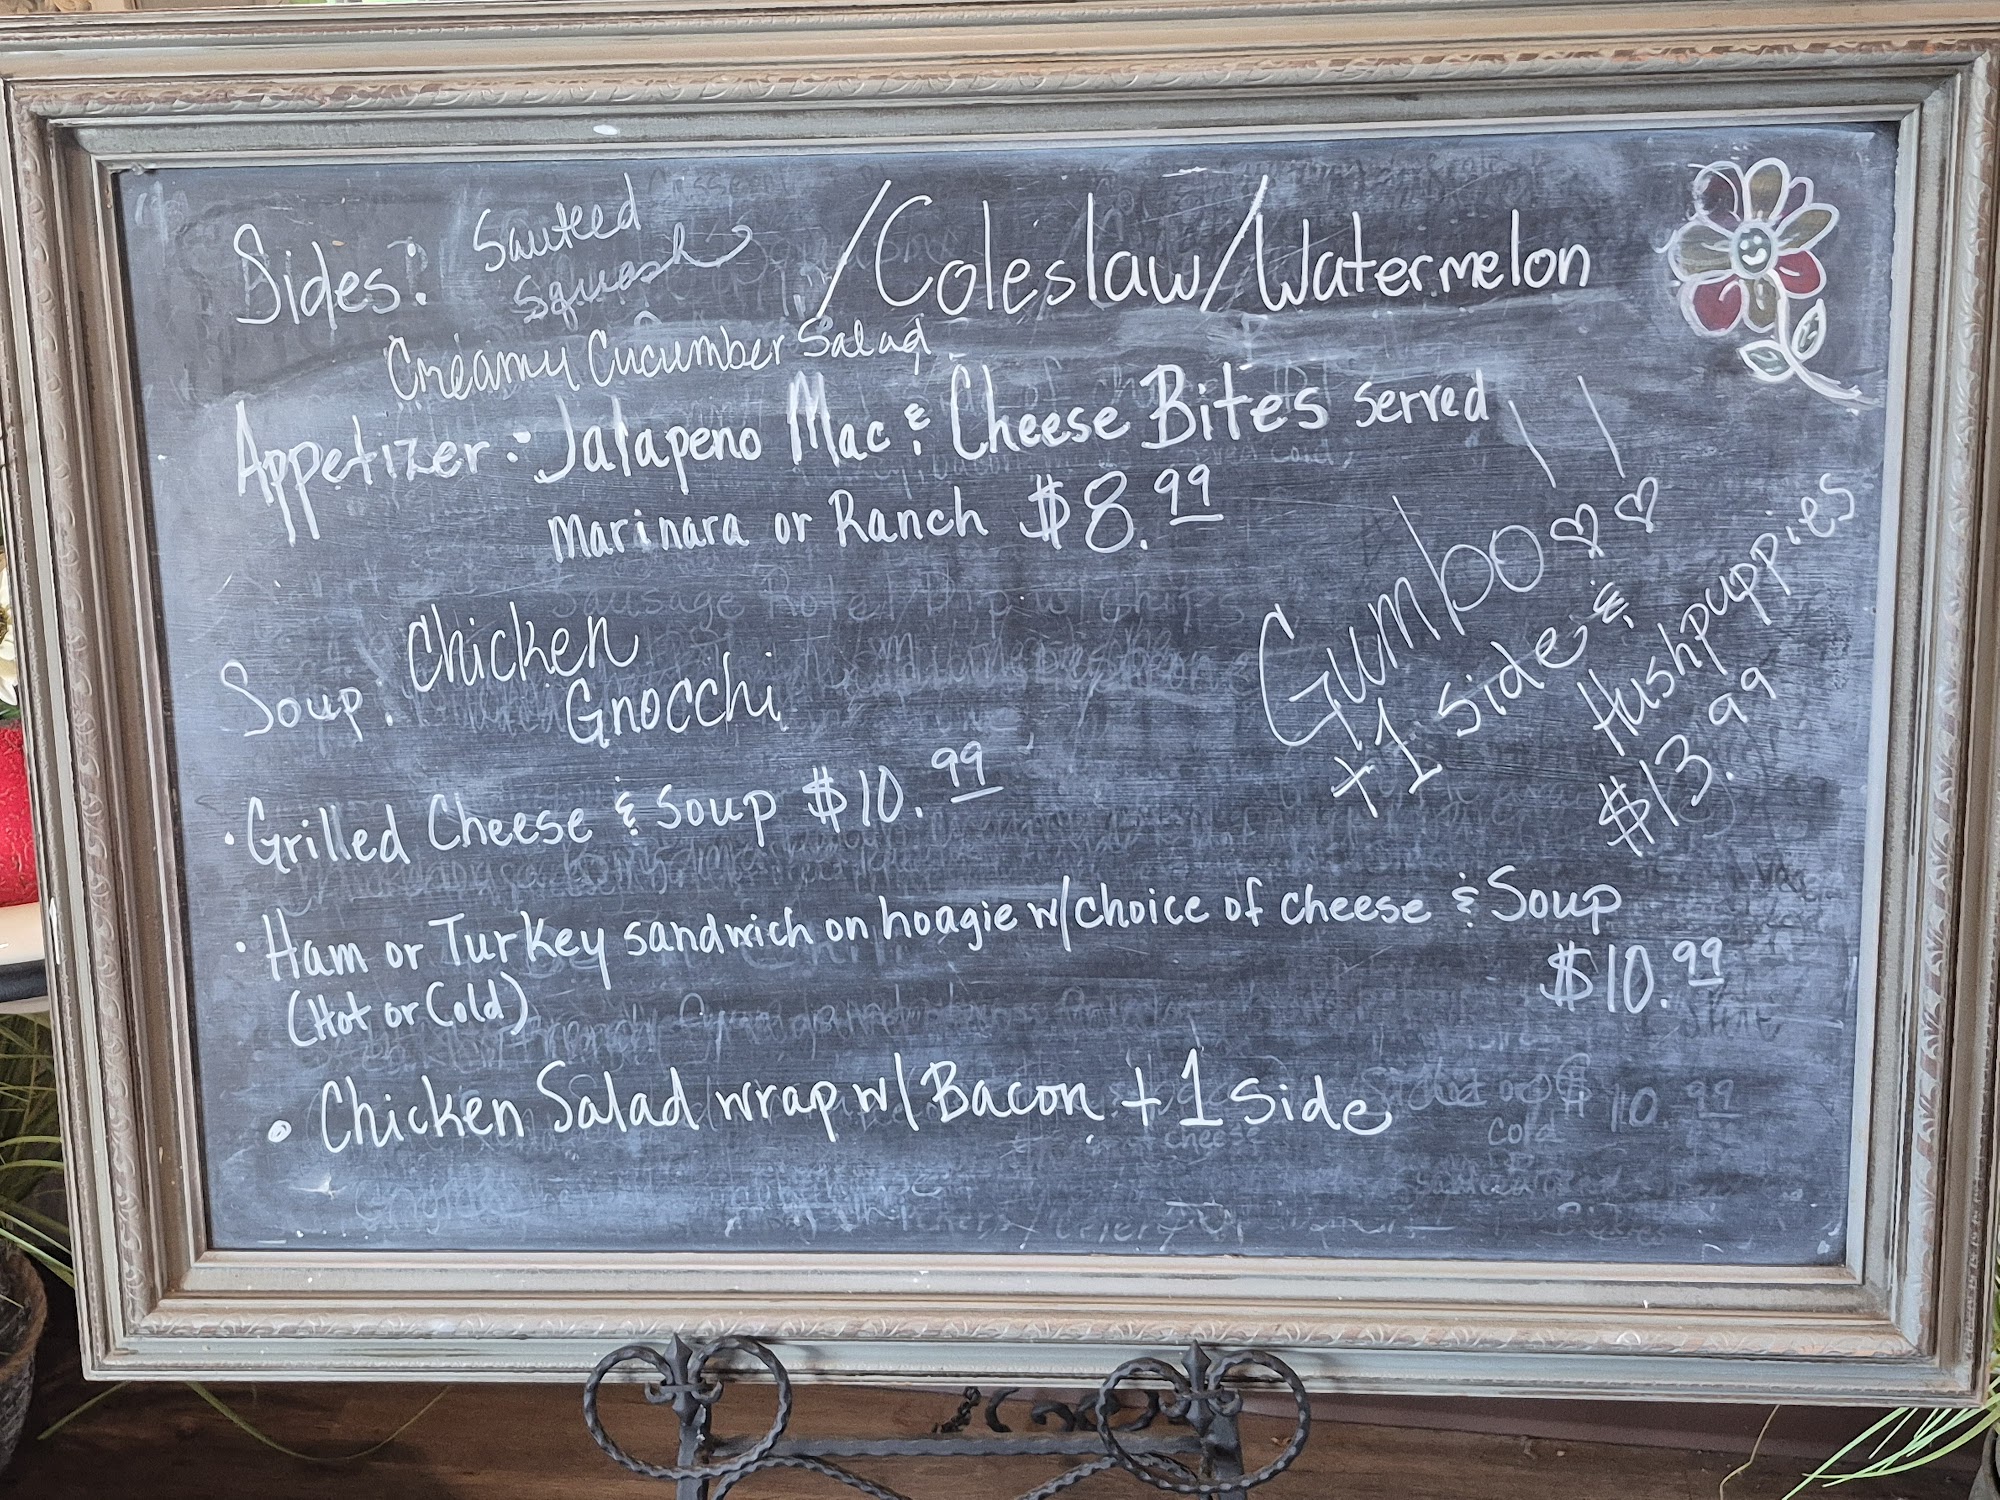 Sides: Sauteed Squash /Coleslaw/Watermelon
Creamy Cucumber Salad
Appetizer: Jalapeno Mac & Cheese Bites served
marinara or Ranch $8.99
Soup: Chicken
Gnocchi
Gumbo
+1 Side &
Hushpuppies
$13.99
• Grilled Cheese & Soup $10.99
• Ham or Turkey sandwich on hoagie w/choice of cheese & Soup
(Hot or Cold) $10.99
• Chicken Salad wrap w/Bacon + 1 Side